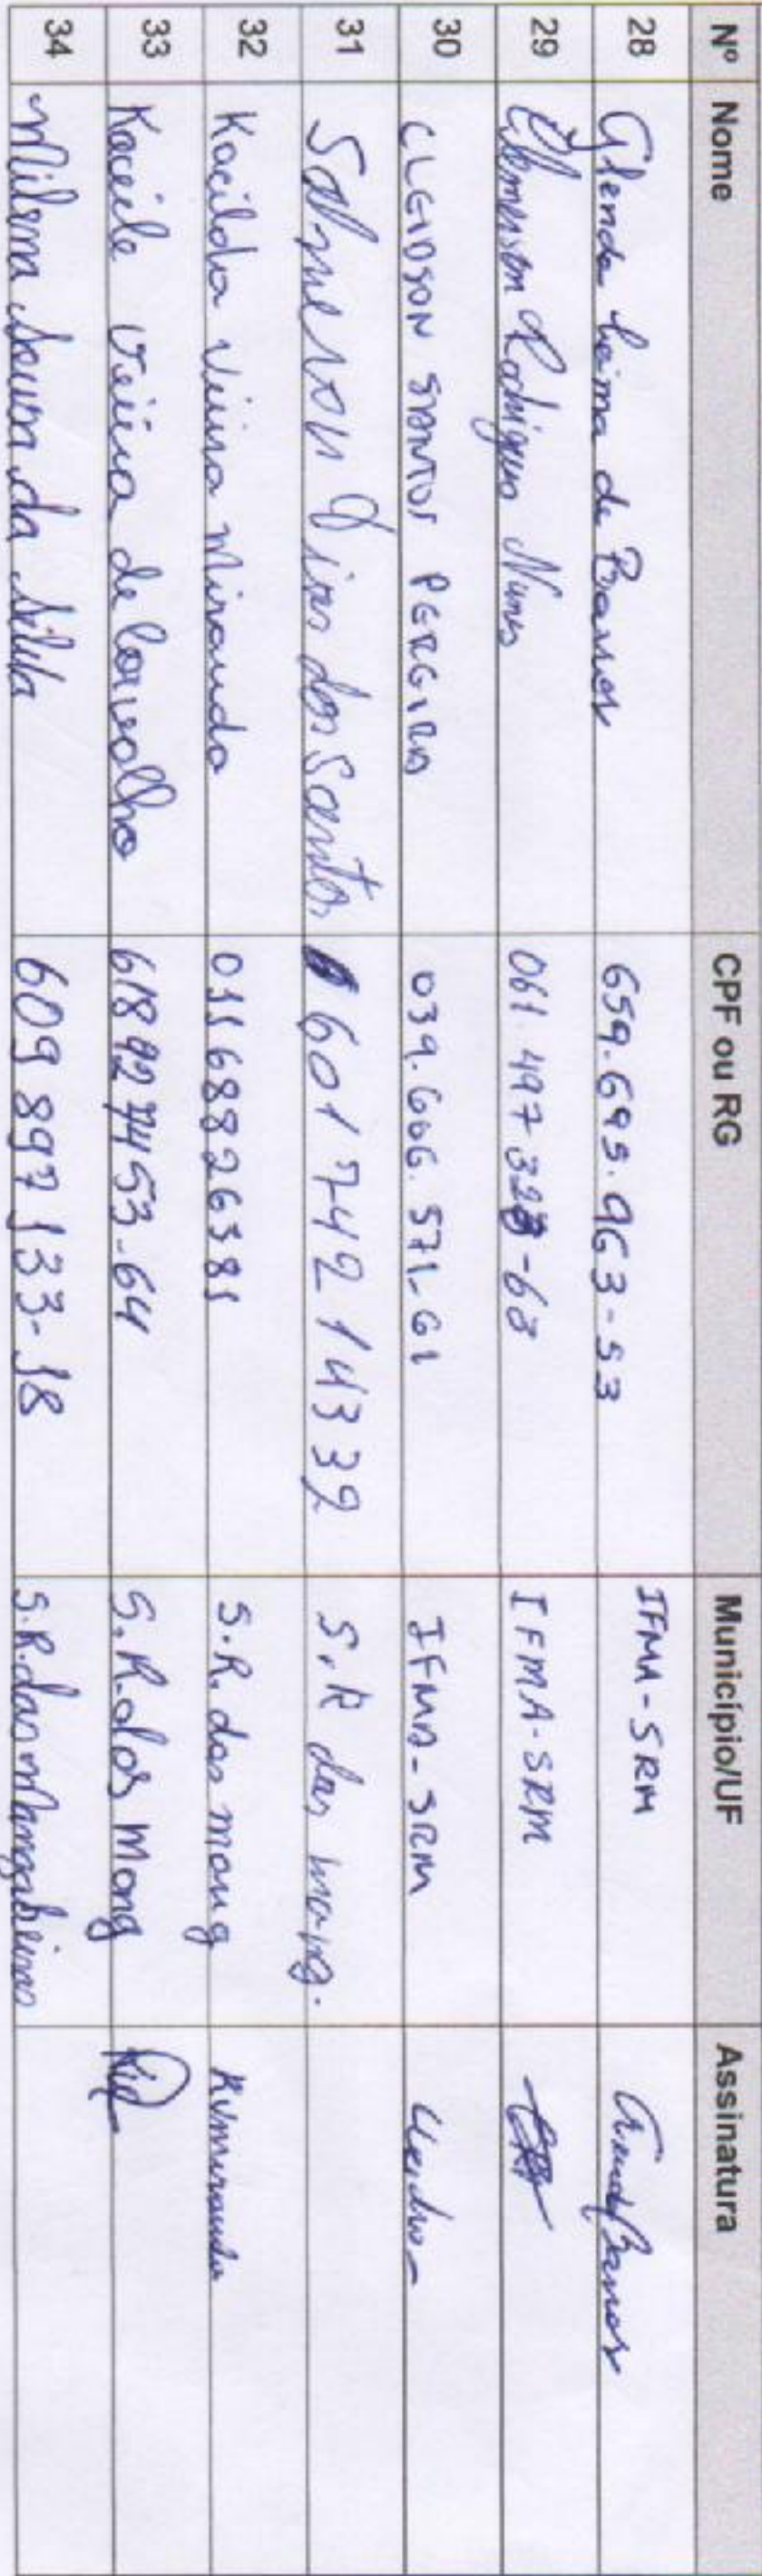 Nº Nome CPF ou RG Município/UF Assinatura
28 Glenda Leima de Barros 659.695.963-53 IFMA-SRM Barros
29 Rodrigues Nunes 061.497 328-63 IFMA-SRM
30 CLEIDSON SANTOS PEREIRA 039.606.571-61 IFMA-SRM
31 Dias dos Santos 601742 14332 S.R das mang.
32 Kacilda Vieira Miranda 01168826381 S.R. das mang KVmiranda
33 Kacile Vieira de Carvalho 618927453-64 S.R.das Mang
34 Milena Sousa da Silva 609 897 133-18 S.R.das Mangabeiras